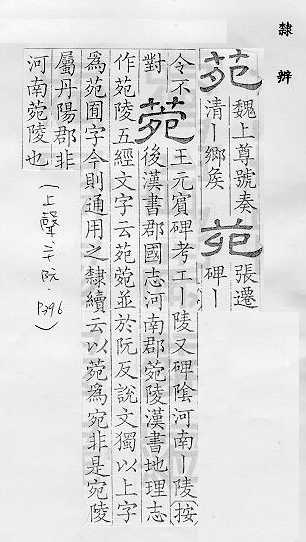 隸辨
苑
魏上尊號奏
清丨鄉矦
苑
張遷
碑丨
令不
對
菀
王元賓碑考工丨陵又碑陰河南丨陵(按)
後漢書郡國志河南郡菀陵漢書地理志
作苑陵五經文字云苑菀並於阮反說文獨以上字
為苑囿字今則通用之隸續云以菀為宛非是宛陵
屬丹陽郡非
河南菀陵也
(上聲.廿阮.P396)